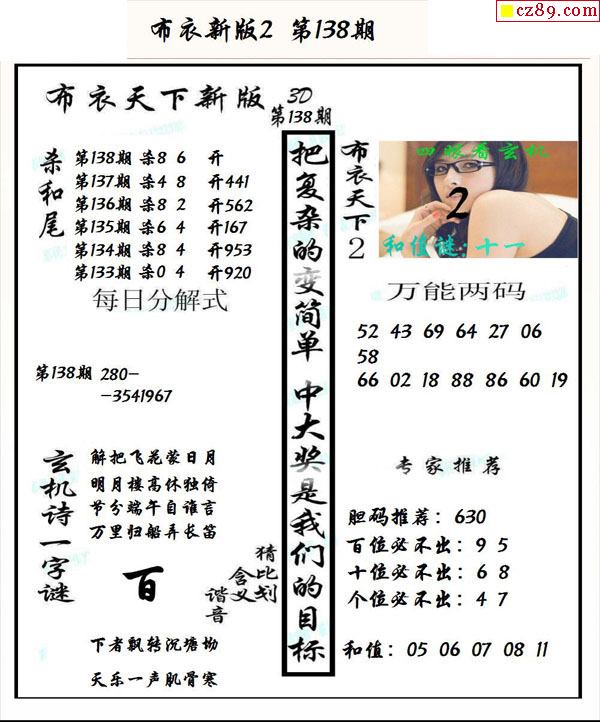 cz89.com
布衣新版2 第138期
布衣天下新版 3D
第138期
杀和尾
第138期 柒8 6 开
第137期 柒4 8 开441
第136期 柒8 2 开562
第135期 柒6 4 开167
第134期 柒8 4 开953
第133期 柒0 4 开920
每日分解式
第138期 280-
-3541967
玄机诗一字谜
解把飞花蒙日月
明月楼高休独倚
节分端午自谁言
万里归船弄长笛
百
猜比划
含义
谐音
下者飘转沉塘坳
天乐一声肌骨寒
把复杂的变简单 中大奖是我们的目标
布衣天下2
四眼看玄机
2
和值谜:十一
万能两码
52 43 69 64 27 06
58
66 02 18 88 86 60 19
专家推荐
胆码推荐: 630
百位必不出: 9 5
十位必不出: 6 8
个位必不出: 4 7
和值: 05 06 07 08 11